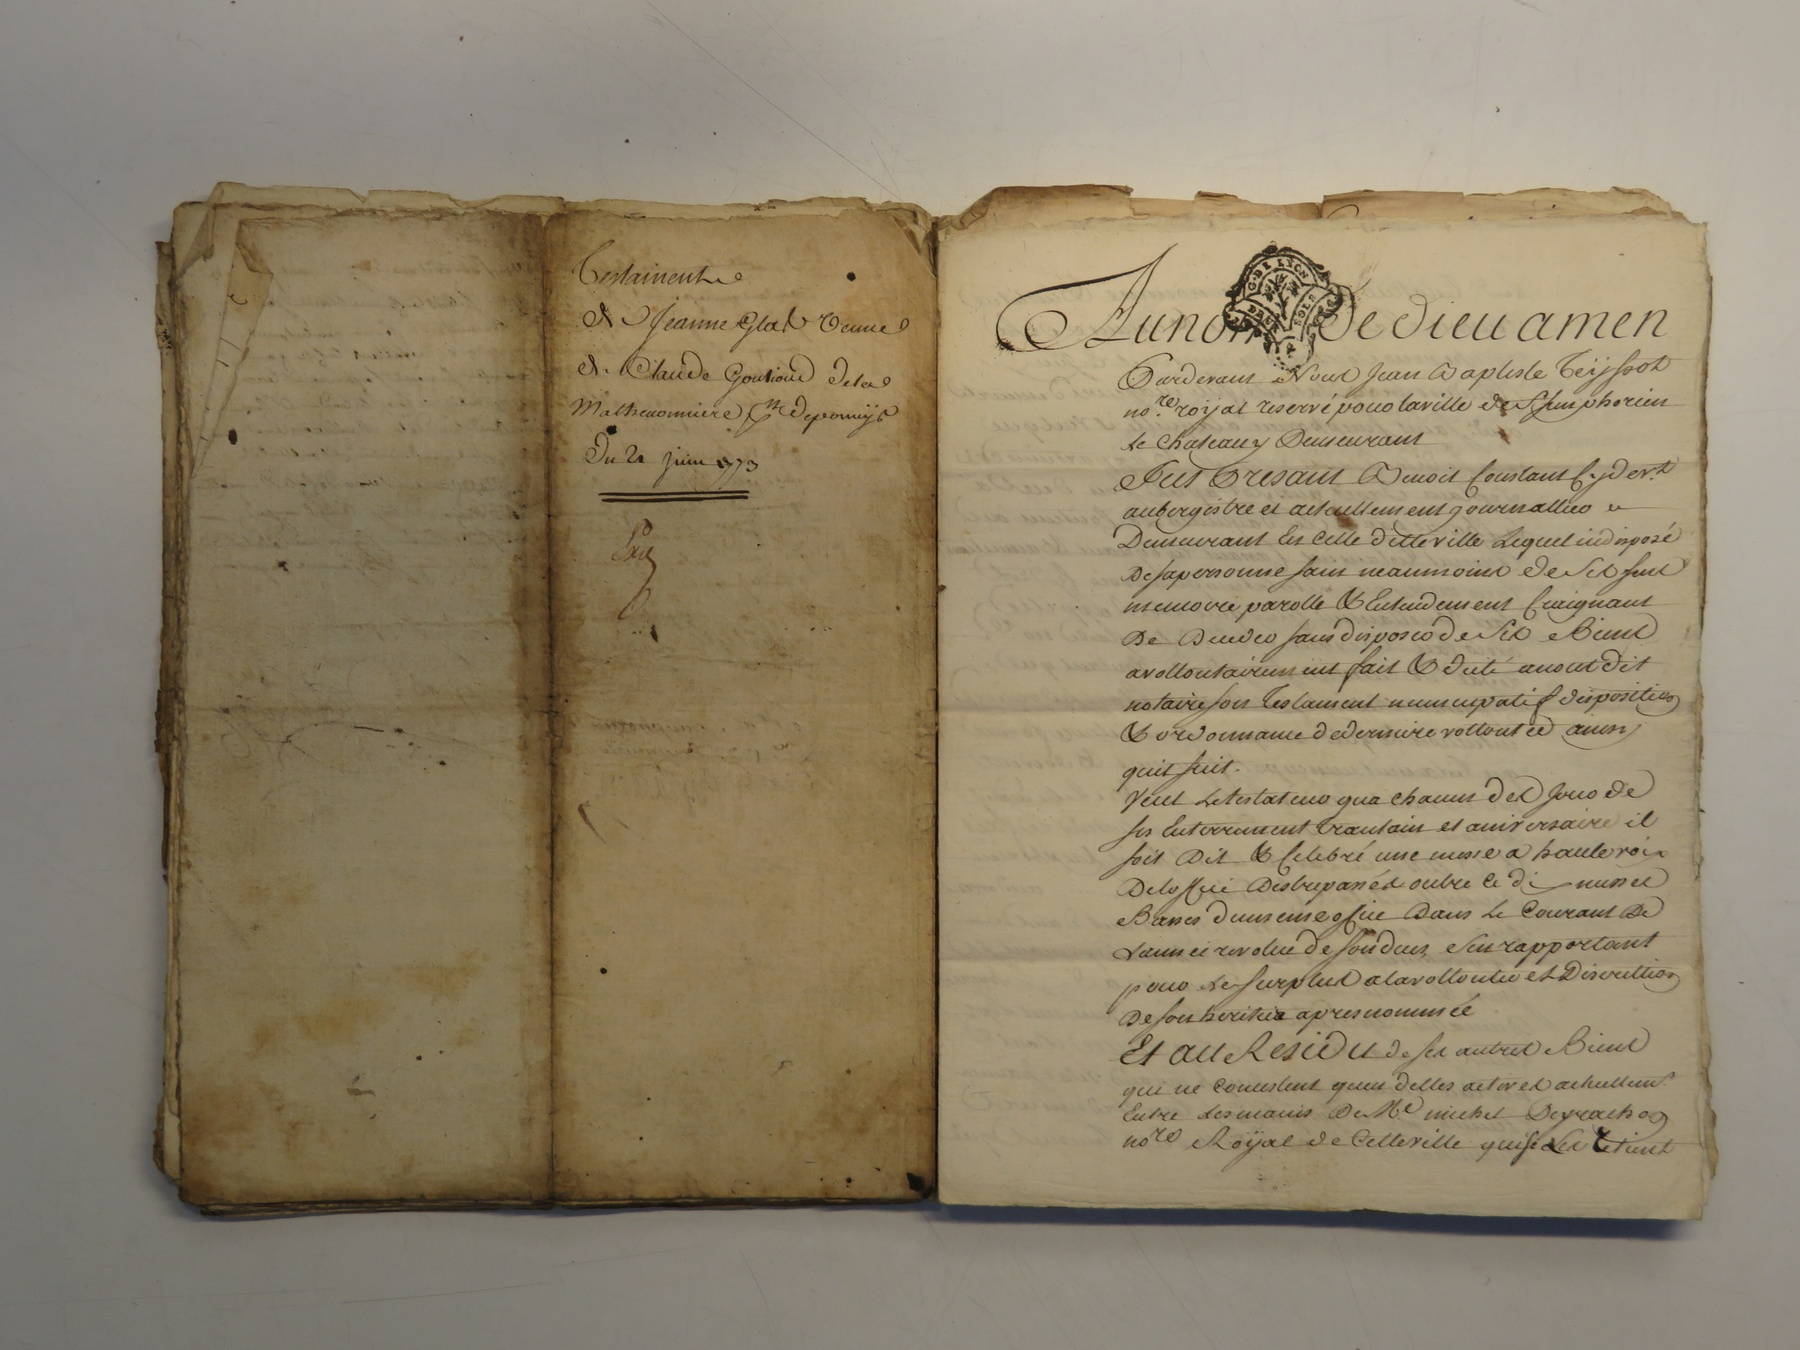 Testament
de Jeanne Glas Veuve
de Claude Goutioud dela
Matheuonniere St depomijs
Du 21 juin 1773
Exp
G. DE LYON
DEUX SOLS
Au nom de dieu amen
Pardevant Nous Jean Baptiste Teyssot
no.re royal reservé pour la ville de St simphorien
le chateau y Demeurant
fut Present Benoit Constant Cy dev.t
aubergistre et actuellement journallier
Demeurant En Celle ditte ville Lequel indisposé
De sa personne sain neanmoins de Ses sens
memoire parolle & Entendement Craignant
De Deceder sans disposer de Ses Biens
a vollontairement fait & dicté a nous dit
notaire son Testament nuncupatif disposition
& ordonnance de derniere vollonté ainsy
quil suit.
Veut Le testateur qua chacun des jours de
ses Enterrement trantain et aniversaire il
soit Dit & Celebré une messe a haute voix
De loffice Des trepassés outre Ce dix messes
Basses dumeme office Dans Le Courant De
Lannée revolue de son deces, sen rapportant
pour Le surplus a la vollonté et Discretion
De son heritier apres nommée
Et au Residu de ses autres Biens
qui ne Consistent quen delles actuellem.t
Entre Les mains De Me michel
no.re Royal de Cette ville qui se Les retient